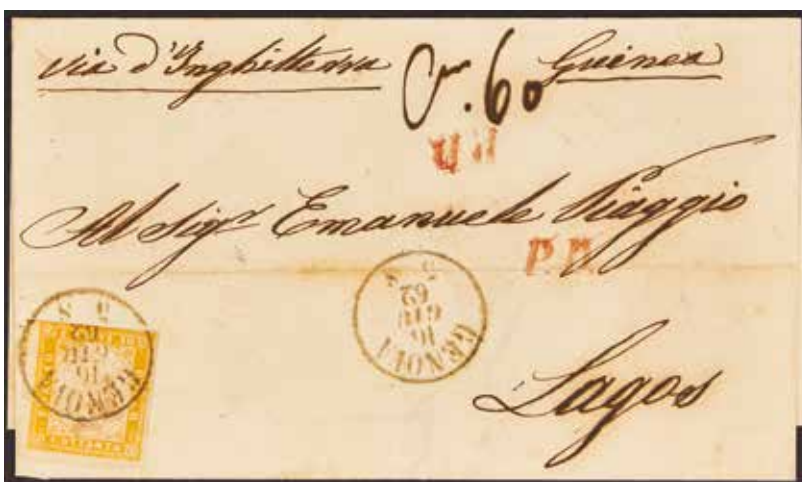 via d'Inghilterra Cm. 60 Guinea
Al Sigr Emanuele Viaggio
P.D.
GENOVA
16
GIU
62
5 S
GENOVA
16
GIU
62
5 S
Lagos